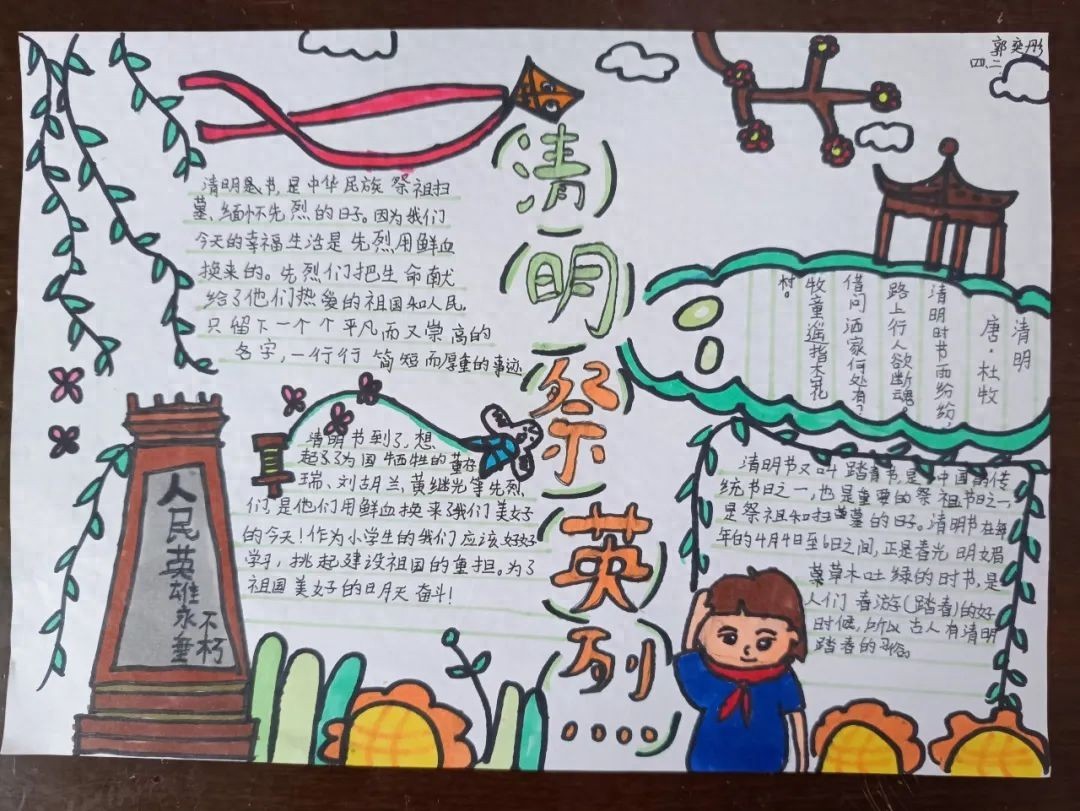 郭奕彤
四.二
清明祭英烈
清明是节,是中华民族祭祖扫
墓、缅怀先烈的日子。因为我们
今天的幸福生活是先烈用鲜血
换来的。先烈们把生命献
给了他们热爱的祖国和人民,
只留下一个个平凡而又崇高的
名字,一行行简短而厚重的事迹
清明
唐·杜牧
清明时节雨纷纷,
路上行人欲断魂。
借问酒家何处有?
牧童遥指杏花
村。
清明节到了,想
起了为国牺牲的董存
瑞、刘胡兰、黄继光等先烈,
们是他们用鲜血换来了我们美好
的今天!作为小学生的我们应该好好
学习,挑起建设祖国的重担。为了
祖国美好的明天奋斗!
人民英雄永垂不朽
清明节又叫踏青节,是中国的传
统节日之一,也是重要的祭祖节日之一,
是祭祖和扫墓的日子。清明节在每
年的4月4日至6日之间,正是春光明媚
草木吐绿的时节,是
人们春游(踏春)的好
时候,所以古人有清明
踏春的习俗。